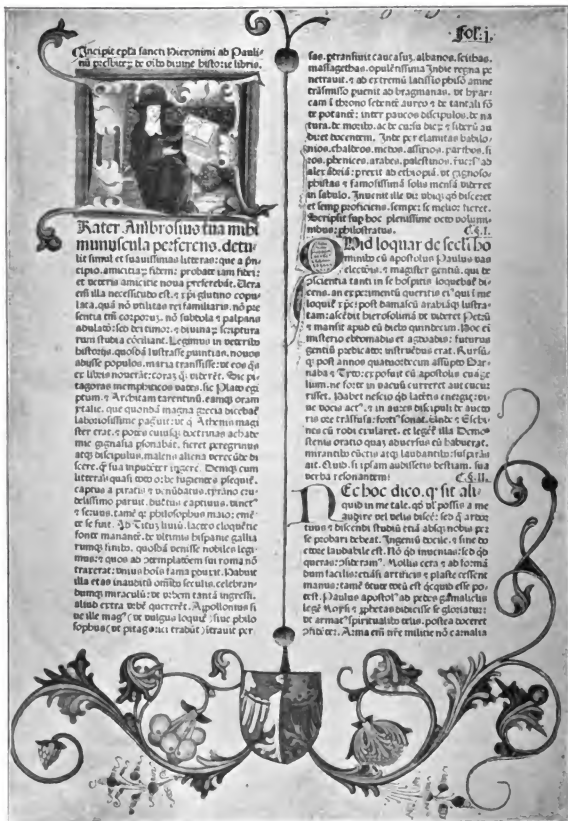 Fol. j.
Incipit epła sancti Hieronimi ad Pauli-
nū presbiteꝝ de oībꝰ diuine historie libris.
Rater Ambrosius tua mihi
munuscula perferens, detu-
lit simul et suauissimas literas: que a prin-
cipio amicitiaꝝ fidem probate iam fidei:
et veteris amicitie noua preferebāt. Uera
eni illa necessitudo est, et xp̄i glutino copu-
lata, quā nō vtilitas rei familiaris, nō pre-
sentia tm̄ corpoꝝ, nō subdola et palpans
adulatio: sed dei timor, et diuinaꝝ scriptura
rum studia cōciliant. Legimus in veteribꝰ
historijs, quosdā lustrasse ꝓuintias, nouos
adisse populos, maria transisse: vt eos q̄s
ex libris nouerāt: corā qꝫ viderēt. Sic pi-
tagoras memphiticos vates, sic Plato egi-
ptum, et Architam tarentinū, eamqꝫ oram
ytalie, que quondā magna grecia dicebaͭ
laboriosissime ꝑagiuit: vt q̇ Athenis magi
ster erat, et potēs cuiusqꝫ doctrinas achade-
mie gignasia ꝑsonabāt, fieret peregrinus
atqꝫ discipulus, malens aliena verecūde di
scere, q̄ sua inpudēter ingerere. Deniqꝫ cum
literas quasi toto orbe fugientes ꝑsequiͭ,
captus a piratis et venūdatus, tyrāno cru-
delissimo paruit, ductus captiuus, vinctꝰ
et seruus, tamē qꝫ philosophus maior emē-
te se fuit. Ad Titū liuiū, lacteo eloquētie
fonte manantē, de vltimis hispanie gallia
rumqꝫ finibꝰ, quosdā venisse nobiles legi-
mus: et quos ad ꝯtemplatōem sui roma nō
traxerat: vnius hoīs fama ꝑduxit. Habuit
illa etas inauditū oībus seculis, celebran-
dumqꝫ miraculū: vt vrbem tantā ingressi,
aliud extra vrbē quererēt. Appollonius si
ue ille magꝰ (vt vulgus loquiͭ) siue philo
sophus (vt pitagorici tradūt) ītrauit per
sas, ꝑtransiuit caucasū, albanos, scithas,
massagethas, opulētissima Indie regna pe
netrauit, et ad extremū latissīo phisō amne
trāsmisso ꝑuenit ad bragmanas, vt hyar-
cam ī throno sedentē aureo et de tantali fō
te potantē: inter paucos discipulos, de na
tura, de moribꝰ, ac de cursu dieꝝ et siderū au
diret docentem. Inde per elamitas babilo
nios, chaldeos, medos, assirios, parthos, si
ros, phenices, arabes, palestinos, reuersꝰ ad
alexādriā: perrexit ad ethiopiā, vt gignoso-
phistas et famosissimā solis mensā videret
in sabulo. Inuenit ille vir vbiqꝫ qd̄ disceret
et semꝑ proficiens, semper se melior fieret.
Scripsit suꝑ hoc plenissime octo volumi-
nibus philostratus. C. §. I.
Quid loquar de secli ho-
minibꝰ cū apostolus Paulus vas
electōis, et magister gentiū, qui de
ꝯscientia tanti in se hospitis loquebaͭ di-
cens, an experimentū queritis eiꝰ qui ī me
loquiͭ xp̄s: post damascū arabiāqꝫ lustra-
tam: ascēdit hierosolimā vt videret Petrū
et mansit apud eū diebꝰ quindecim. Hoc eī
misterio ebdomadis et ogdoadis: futurus
gentiū predicator instruēdus erat. Rursūqꝫ
post annos quatuordecim assūpto Bar-
naba et Tyto: exposuit cū apostolis euāge
lium, ne forte in vacuū curreret aut cucur-
risset. Habet nescio qd̄ latētis energie: vi-
ue vocis actꝰ, et in aures discipuli de aucto
ris ore trāsfusa: fortiꝰ sonat. Unde et Eschi-
nes cū rodi exularet, et legereͭ illa Demo-
stenis oratio quā aduersus eū habuerat,
mirantibꝰ cūctis atqꝫ laudantibꝰ: suspirās
ait. Quid, si ipsam audissetis bestiam, sua
verba resonantem: C. §. II.
Nec hoc dico, qꝫ sit ali-
quid in me tale, qd̄ vel possis a me
audire vel velis discere: sed q̄ ardor
tuus et discendi studiū etiā absqꝫ nobis per
se probari debeat. Ingeniū docile, et sine do
ctore laudabile est. Nō qd̄ inuenias: sed qd̄
queras: ꝯsideramꝰ. Mollis cera et ad formā
dum facilis: etiāsi artificis et plaste cessent
manus: tamē virtute totū est quicquid esse po-
test. Paulus apostolꝰ ad pedes gamalielis
legē Moysi et ꝓphetas didicisse se gloriaͭ:
vt armatꝰ spiritualibꝰ telis, postea doceret
ꝯfidēter. Arma enī nr̄e militie nō carnalia